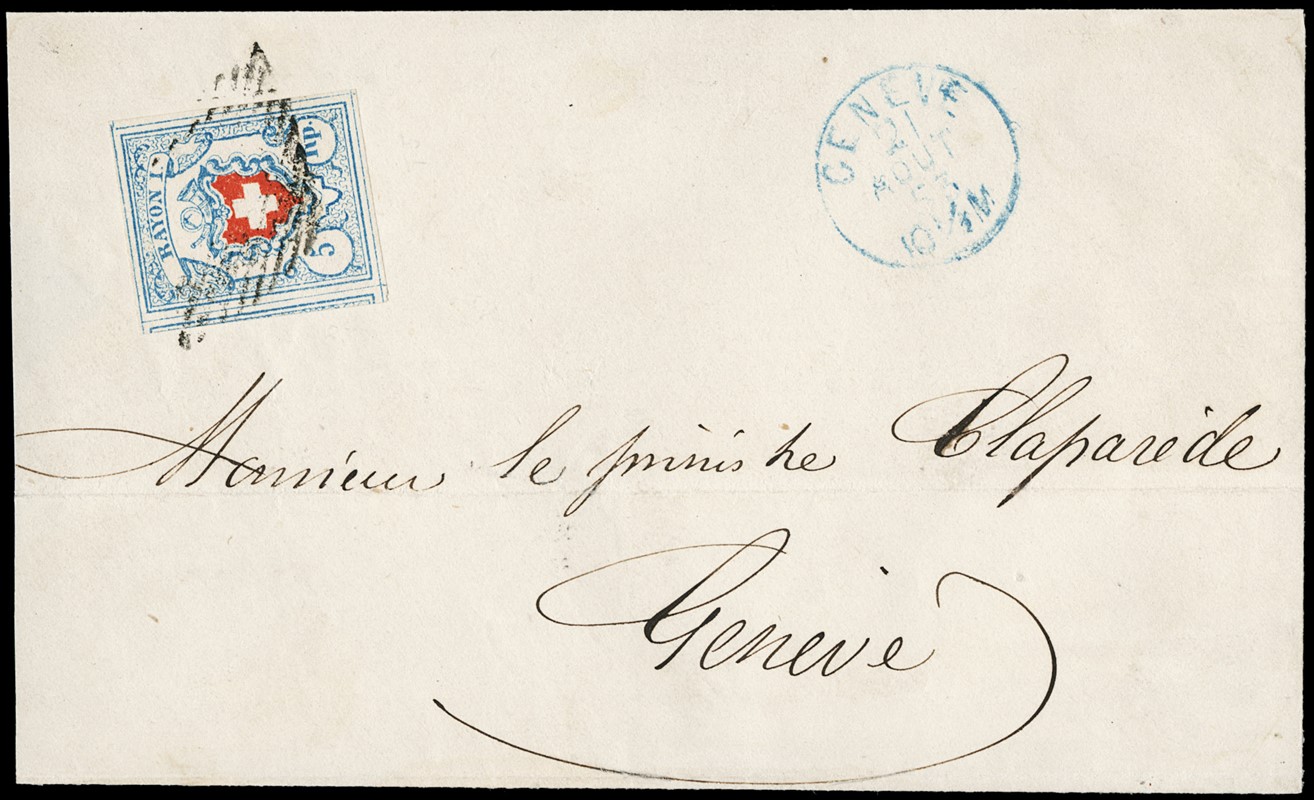 RAYON I.
5
rp.
GENÈVE
21
AOUT
10½M
Monsieur le ministre Claparède
Genève